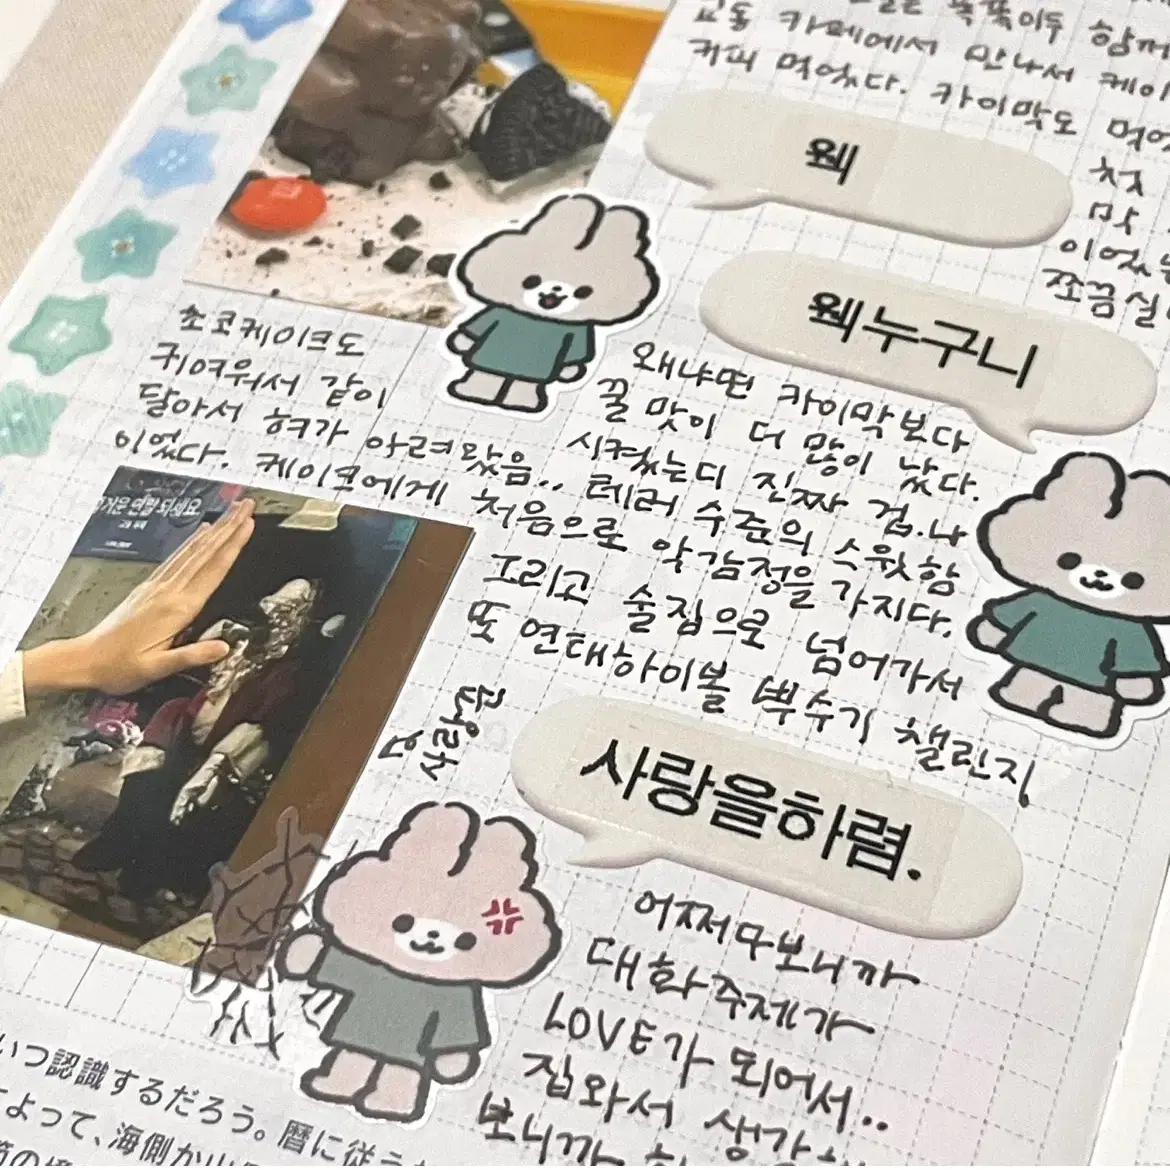 함께
교동 카페에서 만나서 케이
커피 먹었다. 카이막도 먹었
첫
맛
이었는
쪼끔 실
웩
웩누구니
초코케이크도
귀여워서 같이
시켰는디 진짜 겁.나
달아서 혀가 아려왔음.. 테러 수준의 스윗함
이었다. 케이크에게 처음으로 악감정을 가지다.
왜냐면 카이막보다
꿀 맛이 더 많이 났다.
그리고 술집으로 넘어가서
또 연태하이볼 뿌수기 챌린지
거운 연말 되세요
사랑의
사랑을하렴.
어쩌구보니까
대화주제가
LOVE가 되어서..
집와서 생각
보니까
いつ認識するだろう。暦に従う
よって、海側か山